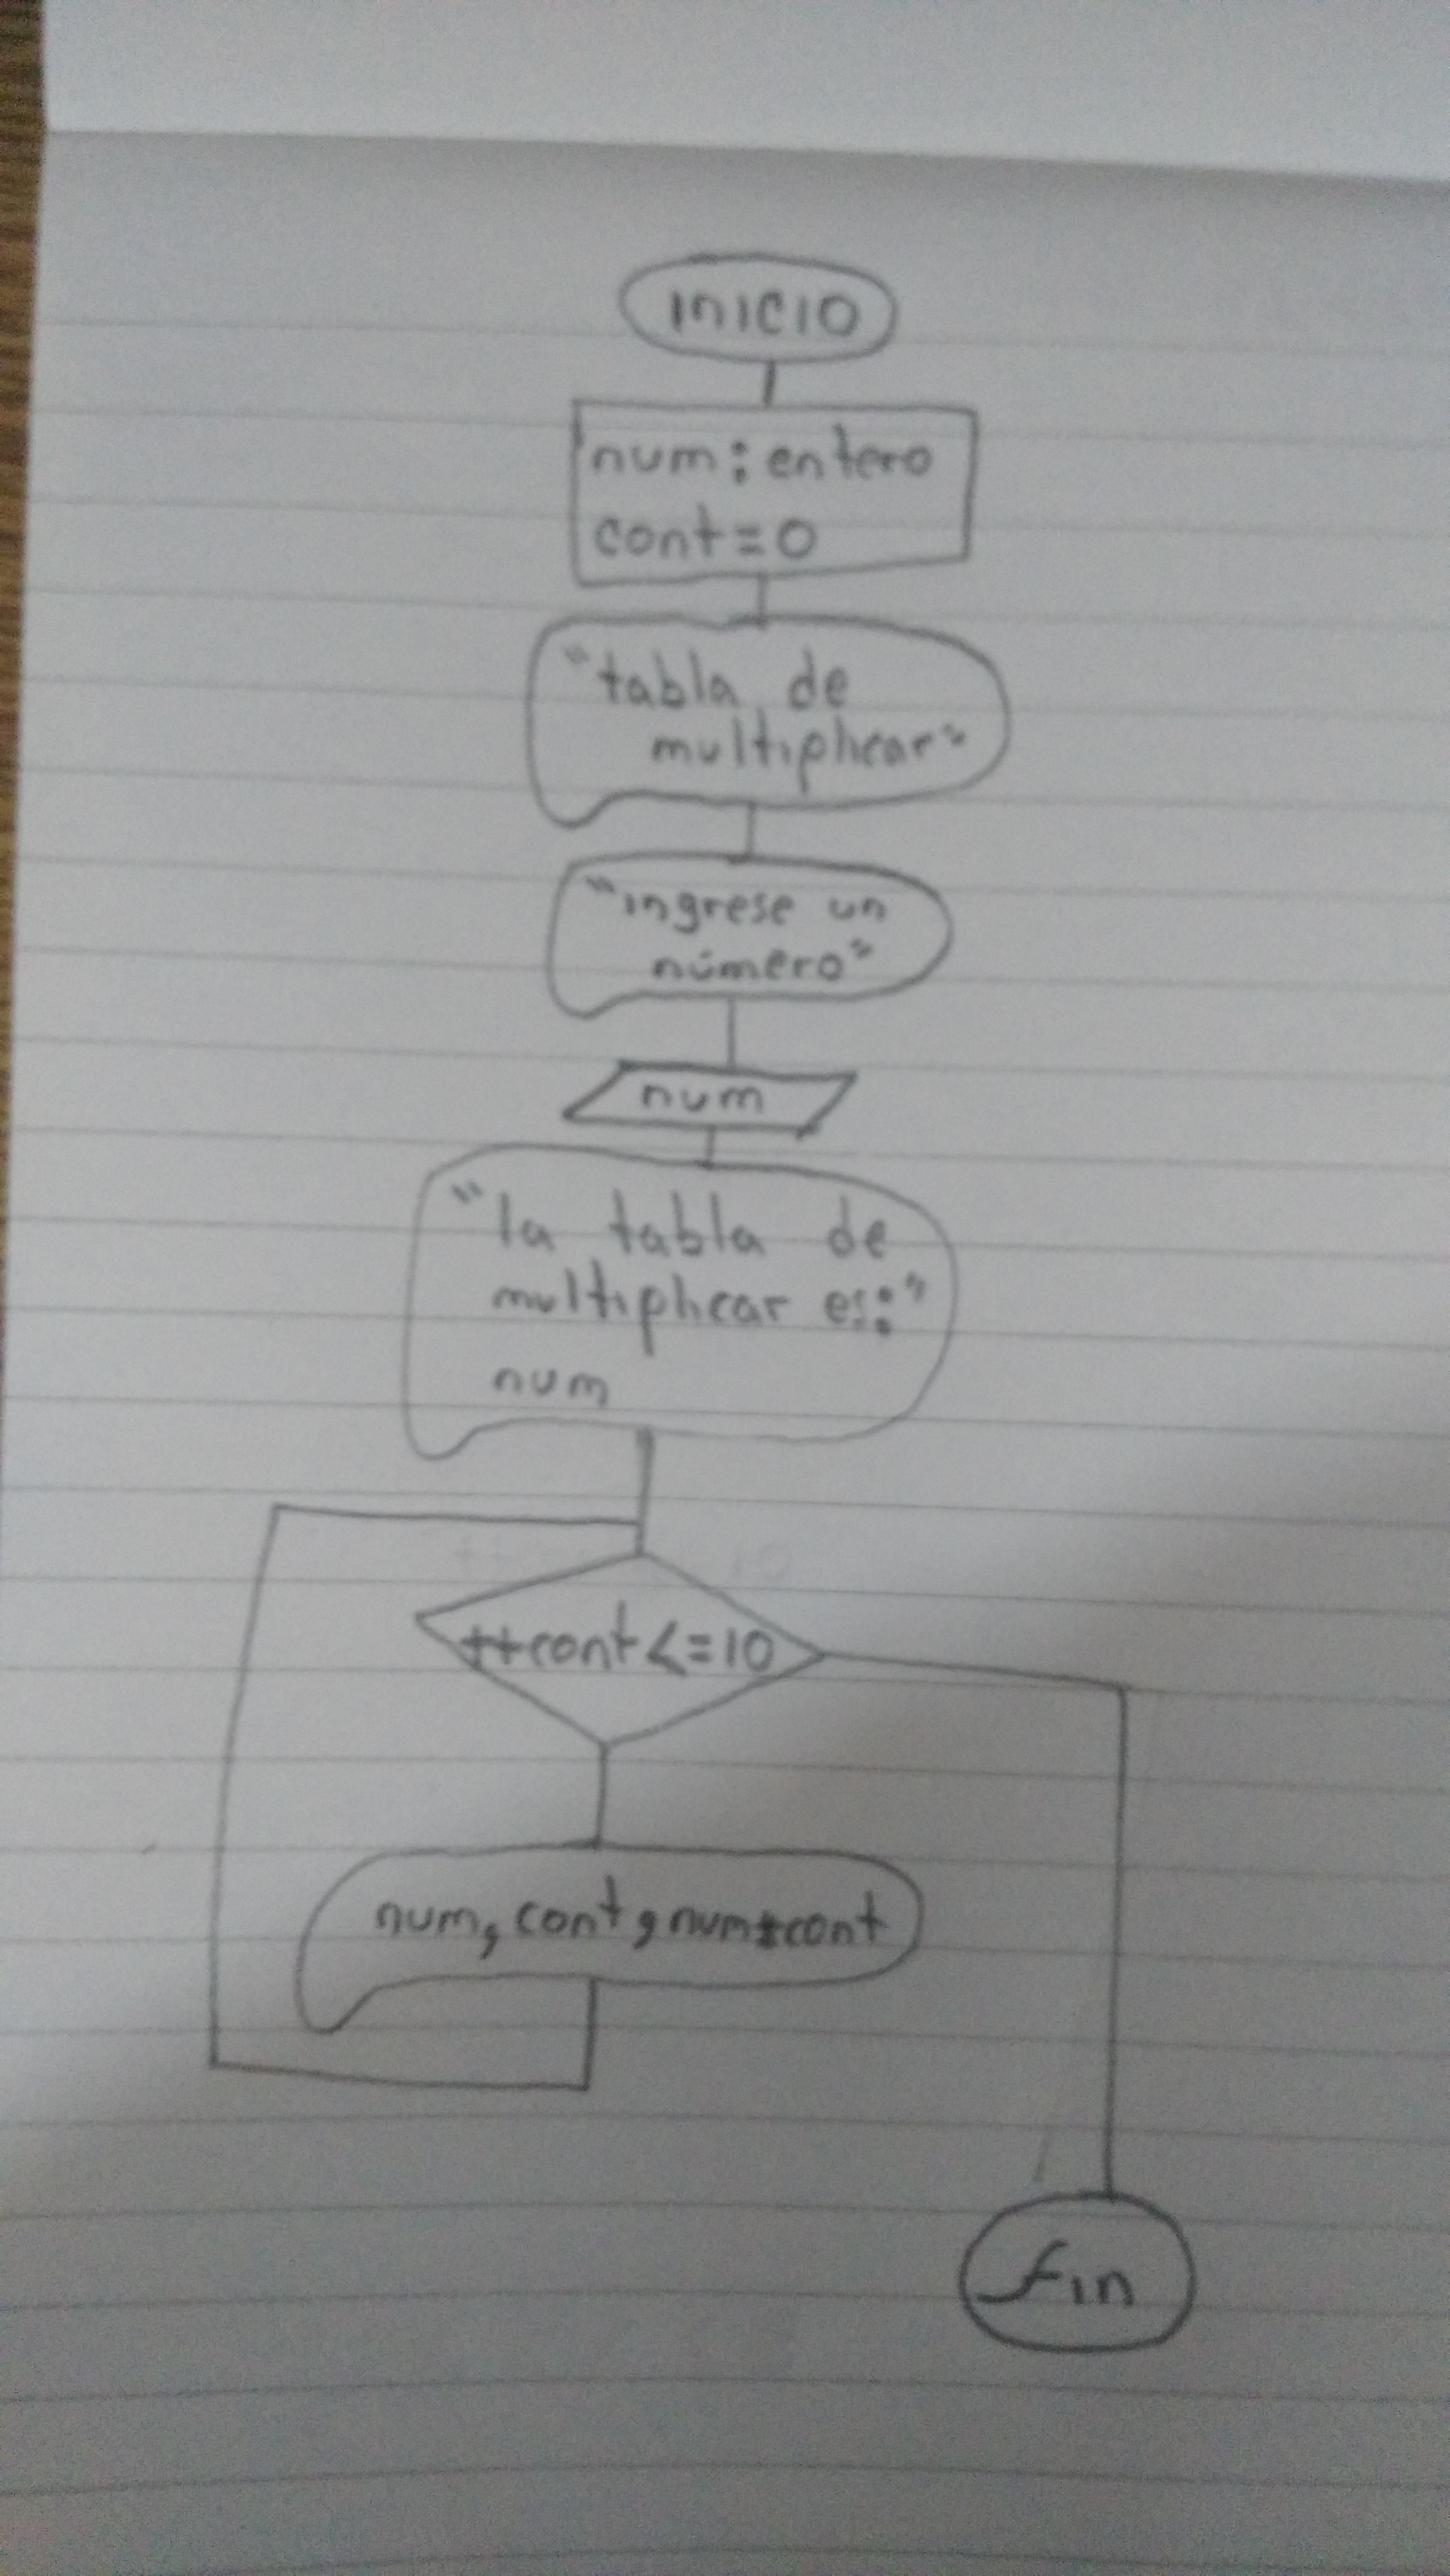 inicio
num: entero
cont=0
"tabla de
multiplicar"
"ingrese un
número"
num
"la tabla de
multiplicar es:"
num
++cont<=10
num, cont, num*cont
fin